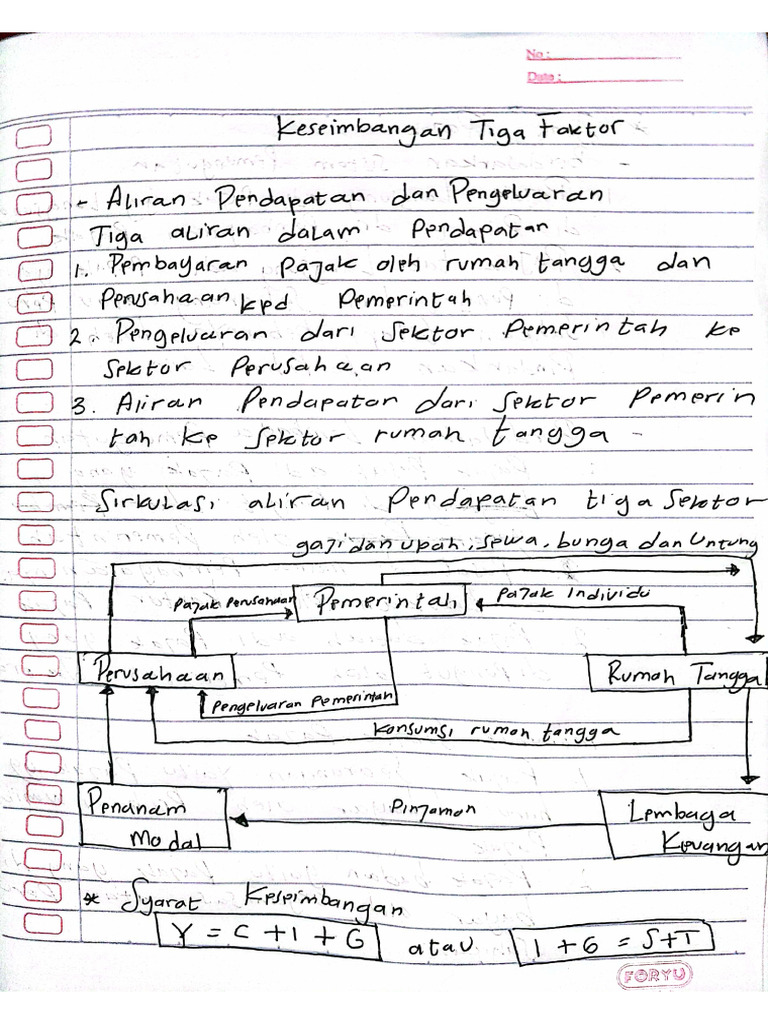 No :
Date :
Keseimbangan Tiga Faktor
- Aliran Pendapatan dan Pengeluaran
Tiga aliran dalam Pendapatan
1. Pembayaran Pajak oleh rumah tangga dan
Perusahaan kpd Pemerintah
2. Pengeluaran dari Sektor Pemerintah ke
Sektor Perusahaan
3. Aliran Pendapatan dari Sektor Pemerin
tah ke Sektor rumah tangga -
Sirkulasi aliran Pendapatan tiga Sektor
gaji dan upah, sewa, bunga dan Untung
Pajak Perusahaan
Pemerintah
Pajak Individu
Perusahaan
Rumah Tangga
Pengeluaran Pemerintah
Konsumsi rumah tangga
Penanam
Modal
Pinjaman
Lembaga
Keuangan
* Syarat Keseimbangan
Y = C + I + G atau I + G = S + T
FORYU